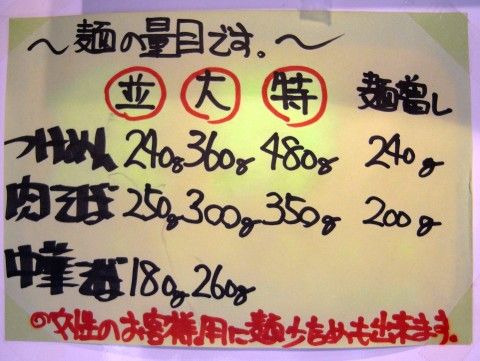 〜麺の量目です。〜
並 大 特 麺増し
つけめん 240g 360g 480g 240g
肉そば 250g 300g 350g 200g
中華そば 180g 260g
◎女性のお客様用に麺少なめも出来ます。